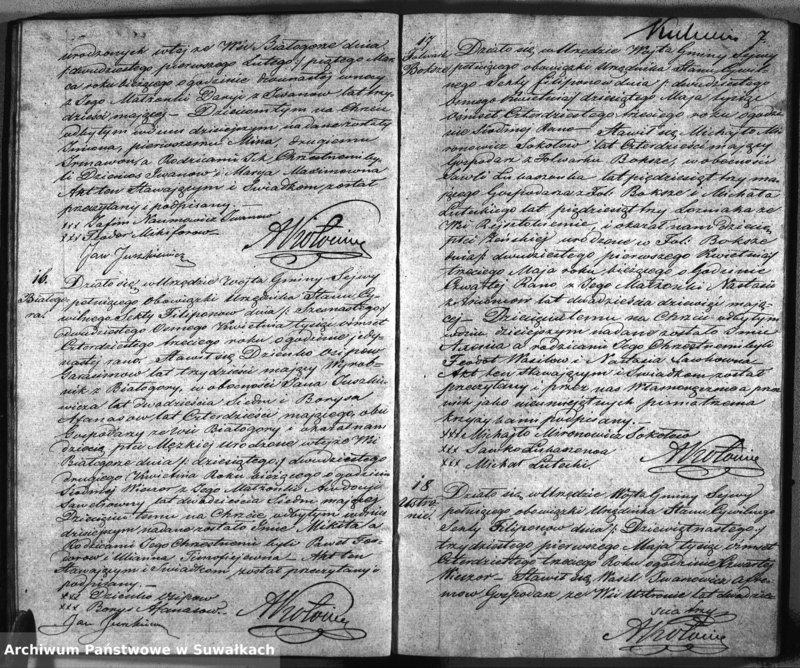 urodzonych w tej że Wsi Białogorze dnia
dwudziestego pierwszego Lutego / piątego Mar
ca roku bieżącego o godzinie dwunastej w nocy
z Jego Małżonki Daryi z Iwanow lat trzy
dzieści mającej — Dzieciom tym na Chrzcie
odbytym w dniu dzisiejszym nadane zostały
Imiona, pierwszemu Mina, drugiemu
a Rodzicami Ich Chrzestnemi by
li Dzienis Iwanow i Marya Maximowna
Akt ten Stawającym i Świadkom został
przeczytany i podpisany —
xxx Zafim Naumowicz Iwanow
xxx Fiedor Mikiforow
Jan Juszkiewicz
16.
Białogo
ra.
Działo się w Urzędzie Wójta Gminy Sejwy
pełniącego obowiązki Urzędnika Stanu Cy
wilnego Sekty Filiponow dnia / Szesnastego /
dwudziestego Osmego Kwietnia tysiąc ośmset
Czterdziestego trzeciego roku o godzinie
rano. Stawił się Dzienko Osipow
Gerasimow lat trzydzieści mający Wyrob
nik z Białogory, w obecności Jana Jusz
kiewicza lat dwadzieścia Siedm i Borysa
Afanasow lat Czterdzieści mającego obu
Gospodarzy ze Wsi Białogory i okazał nam
dziecię płci Męzkiej urodzone w tej że Wsi
Białogorze dnia / dziesiątego / dwudziestego
drugiego Kwietnia Roku bieżącego o godzinie
Siodmej Wieczor z Jego Małżonki Awdocii
Sawelowny lat dwadzieścia Siedm mającej
Dziecięciu temu na Chrzcie odbytym w dniu
dzisiejszym nadano zostało Imie Mikita a
Rodzicami Jego Chrzestnemi byli Paweł Fed
orow i Ulianna Timofiejewna — Akt ten
Stawającym i Świadkom został przeczytany i
podpisany —
xxx Dzienko Osipow
xxx Borys Afanasow
Jan Juszkiewicz
7
17
Folwark
Boksze
Działo się w Urzędzie Wójta Gminy Sejwy
pełniącego obowiązki Urzędnika Stanu Cywil
nego Sekty Filiponow dnia / dwudziestego
osmego Kwietnia / dziesiątego Maja tysiąc
ośmset Czterdziestego trzeciego roku o godzi
nie Siodmej Rano — Stawił się Michajło Mi
ronowicz Sokołow lat Czterdzieści mający
Gospodarz z Folwarku Boksze, w obecności
Sawki Łukasz lat pięćdziesiąt trzy ma
jącego Gospodarza z Fol. Boksze i Michała
Luteckiego lat pięćdziesiąt trzy
Wsi i okazał nam Dziecię
płci Żeńskiej urodzone w Fol: Boksze
dnia / dwudziestego pierwszego Kwietnia /
trzeciego Maja roku bieżącego o Godzinie
Czwartej Rano z Jego Małżonki Nastasii
z lat dwadzieścia dziewięć mają
cej — Dziecięciu temu na Chrzcie odbytym
w dniu dzisiejszym nadano zostało Imie
a rodzicami Jego Chrzestnemi byli
Fedot Wasilow i Nastazia Sawkowna
Akt ten Stawającym i Świadkom został
przeczytany i przez nas
jako nieumiejętnych pisma trzema
krzyżykami podpisany.
xxx Michajło Mironowicz Sokołow
xxx Sawko
xxx Michał Lutecki
18
Ustro
nie
Działo się w Urzędzie Wójta Gminy Sejwy
pełniącego obowiązki Urzędnika Stanu Cywilnego
Sekty Filiponow dnia / Dziewiętnastego /
trzydziestego pierwszego Maja tysiąc ośmset
Czterdziestego trzeciego Roku o godzinie Czwartej
Wieczor — Stawił się Wasil Iwanowicz
Gospodarz ze Wsi Ustronie lat dwadzie
ścia trzy
Archiwum Państwowe w Suwałkach